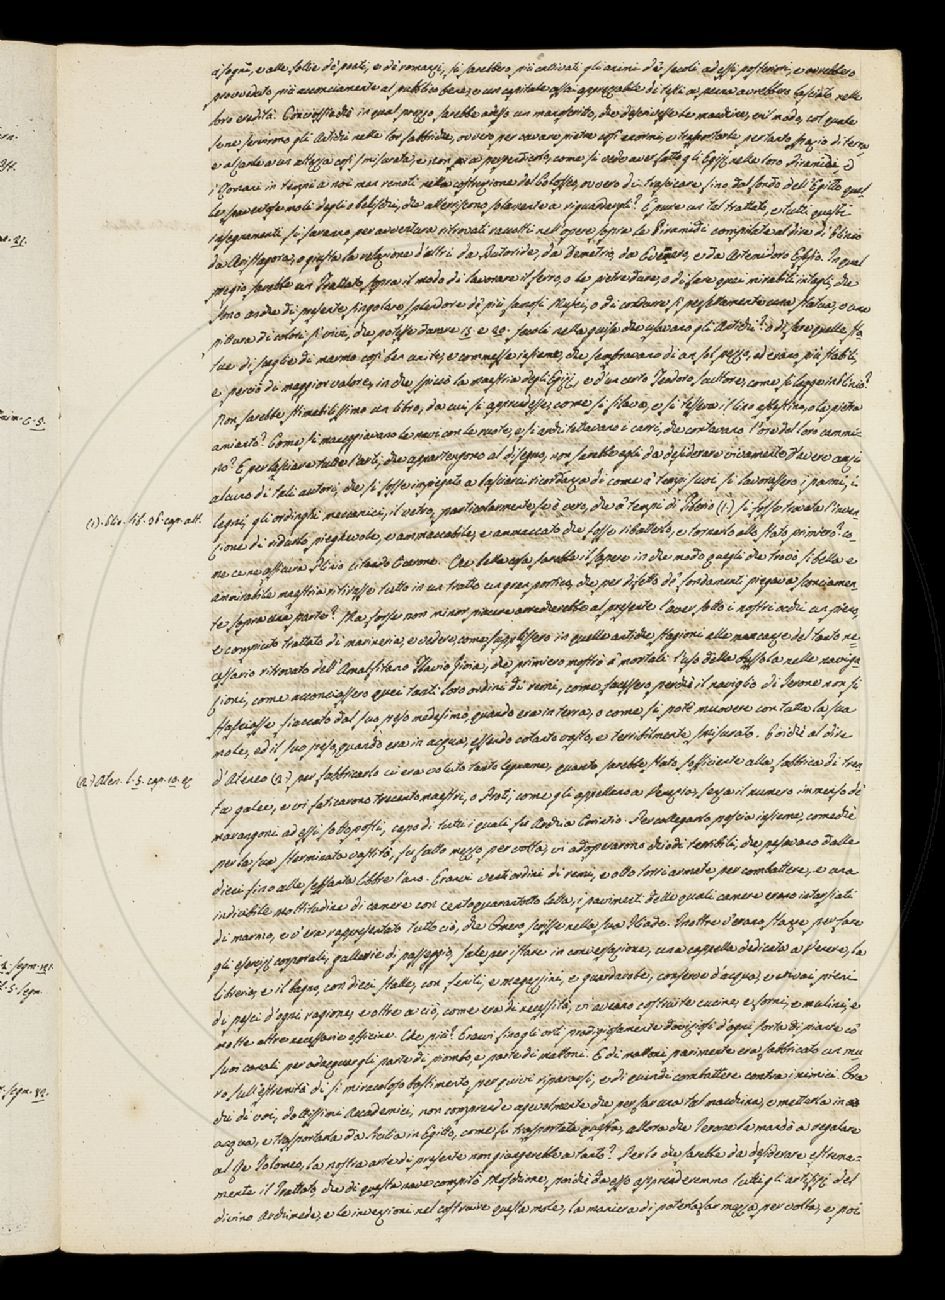 a' sogni, e alle follie de' poeti, e de' romanzi, si sarebbero più coltivati gli animi de' secoli ad essi posteriori, e avrebbero
provveduto più acconciamente al pubblico bene, e un capitale assai apprezzabile di tesi a pena avrebbero lasciato nelle
loro eredità. Conciossiachè in qual prezzo sarebbe adesso un manoscritto, che descrivesse le macchine, ed i modi, col quale
sene servirono gli Antichi nelle lor fabbriche, ovvero per cavare pietre così enormi, e trasportarle per tanto spazio di terra
e alzarle a un altezza così smisurata, e non già perpendicolo, come si vede aver fatto gli Egizj nelle loro Piramidi, o
i Romani in tempi a noi men remoti nella costruzione del Colosseo, ovvero di trasferire fino dal fondo dell'Egitto quel-
le spaventose moli degli obelischi, che atterriscono solamente a riguardargli? E pure un tal trattato, e tutti questi
insegnamenti si saranno per avventura ritrovati raccolti nell'opere sopra le Piramidi compilate al dire di Plinio
da Aristagora, o giusta la relazione d'altri da Butoride, da Demetrio, da Evemero, e da Artemidoro Efesio. In qual
pregio sarebbe un Trattato sopra il modo di lavorare il ferro, o le pietre dure, o di fare quei mirabili intagli, che
sono anche di presente singolare splendore de' più famosi Musei, o di condurre sì perfettamente una statua, o una
pittura di colori sì vivi, che potesse durare 15 e 20 secoli nella guisa che usavano gli Antichi? o di fare quelle sta-
tue di scaglie di marmo così ben unite, e commesse insieme, che sembravano di un sol pezzo, ed erano più stabili
e perciò di maggior valore, in che spiccò la maestria degli Egizj, e d'un certo Teodoro scultore, come si legge in Plinio?
Non sarebbe stimabilissimo un libro, da cui si apprendesse, come si filava, e si tesseva il lino asbestino, o la pietra
amianto? Come si maneggiavano le navi con le ruote, e si architettavano i carri, che contavano l'ore del loro cammi-
no? E per lasciare tutte l'arti, che appartengono al disegno, non sarebb'egli da desiderare vivamente d'avere anzi
alcuno di tali autori, che si fosse impiegato a lasciarci ricordanza di come a' tempi suoi si lavorassero i panni, i
legni, gli ordinghi meccanici, il vetro, particolarmente se è vero, che a' tempi di Tiberio (1) si fosse trovata l'inven-
zione di ridurlo pieghevole, e ammaccabile, e ammaccato che fosse ribatterlo, e tornarlo allo stato primiero? co-
(1) Plin. lib. 36. cap. ult.
me ce ne assicura Plinio citando Varrone. Che bella cosa sarebbe il sapere in che modo quegli che trovò sì bella e
ammirabile maestria ritirasse tutto in un tratto un gran portico, che per difetto de' fondamenti piegava sconciamen-
te sopra una parte? Ma forse non minor piacere arrecherebbe al presente l'aver sotto i nostri occhi un pieno,
e compiuto trattato di marineria, e vedere, come supplissero in quelle antiche stagioni alle mancanze del tanto ne-
cessario ritrovato dell'Amalfitano Flavio Gioia, che primiero mostrò a' mortali l'uso della bussola nelle naviga-
zioni, come acconciassero quei tanti loro ordini di remi, come facessero perchè il naviglio di Jerone non si
sfasciasse fiaccato dal suo peso medesimo, quando era in terra, o come si potè muovere con tutta la sua
mole, ed il suo peso, quando era in acqua, essendo cotanto vasto, e terribilmente smisurato. Poichè al dire
d'Ateneo (2) per fabbricarlo vi era voluto tanto legname, quanto sarebbe stato sufficiente alla fabbrica di tren-
(2) Aten. l. 5. cap. 10. ec
ta galee, e vi faticarono trecento maestri, o Proti, come gli appellano a Venezia, senza il numero immenso de'
marangoni ad essi sottoposti, capo di tutti i quali fu Archia Corintio. Per collegarlo poscia insieme, come chè
per la sua sterminata vastità, fu fatto mezzo per volta, vi adoperarono chiodi terribili, che pesavano dalle
dieci fino alle sessanta libbre l'uno. Eranvi venti ordini di remi, e otto torri armate per combattere, e una
indicibile moltitudine di camere con centoquarantotto letta, i pavimenti delle quali camere erano intarsiati
di marmo, e v'era rappresentato tutto ciò, che Omero scrisse nella sua Iliade. Inoltre v'erano stanze per fare
gli esercizj corporali, gallerie di passeggio, sale per istare in conversazione, una cappella dedicata a Venere, la
libreria, e il bagno, con dieci stalle, con fenili, e magazzini, e guardarobe, conserve d'acqua, e vivai pieni
di pesci d'ogni ragione, e oltre a ciò, come era di necessità, vi aveano costruite cucine, e forni, e mulini, e
molte altre necessarie officine. Che più? Eranvi fino gli orti prodigiosamente dovizioso d'ogni sorta di piante co'
suoi canali per adacquargli parte di piombo, e parte di mattoni. E di mattoni parimente era fabbricato un mu-
ro sull'estremità di sì miracoloso bastimento, per quivi ripararsi, e di quindi combattere contra i nimici. Ora
chi di voi, dottissimi Accademici, non comprende agevolmente che per far una tal macchina, e metterla in
acqua, e trasportarla da Sicilia in Egitto, come fu trasportata questa, allora che Jerone la mandò a regalare
al Re Tolomeo, la nostra arte di presente non giungerebbe a tanto? Per lo che sarebbe da desiderare estrema-
mente il Trattato, che di questa nave compilò Moschione, poichè da esso apprenderemmo tutti gli artifizj del
divino Archimede, e le invenzioni nel costruire questa mole, la maniera di poterla far mezza per volta, e poi